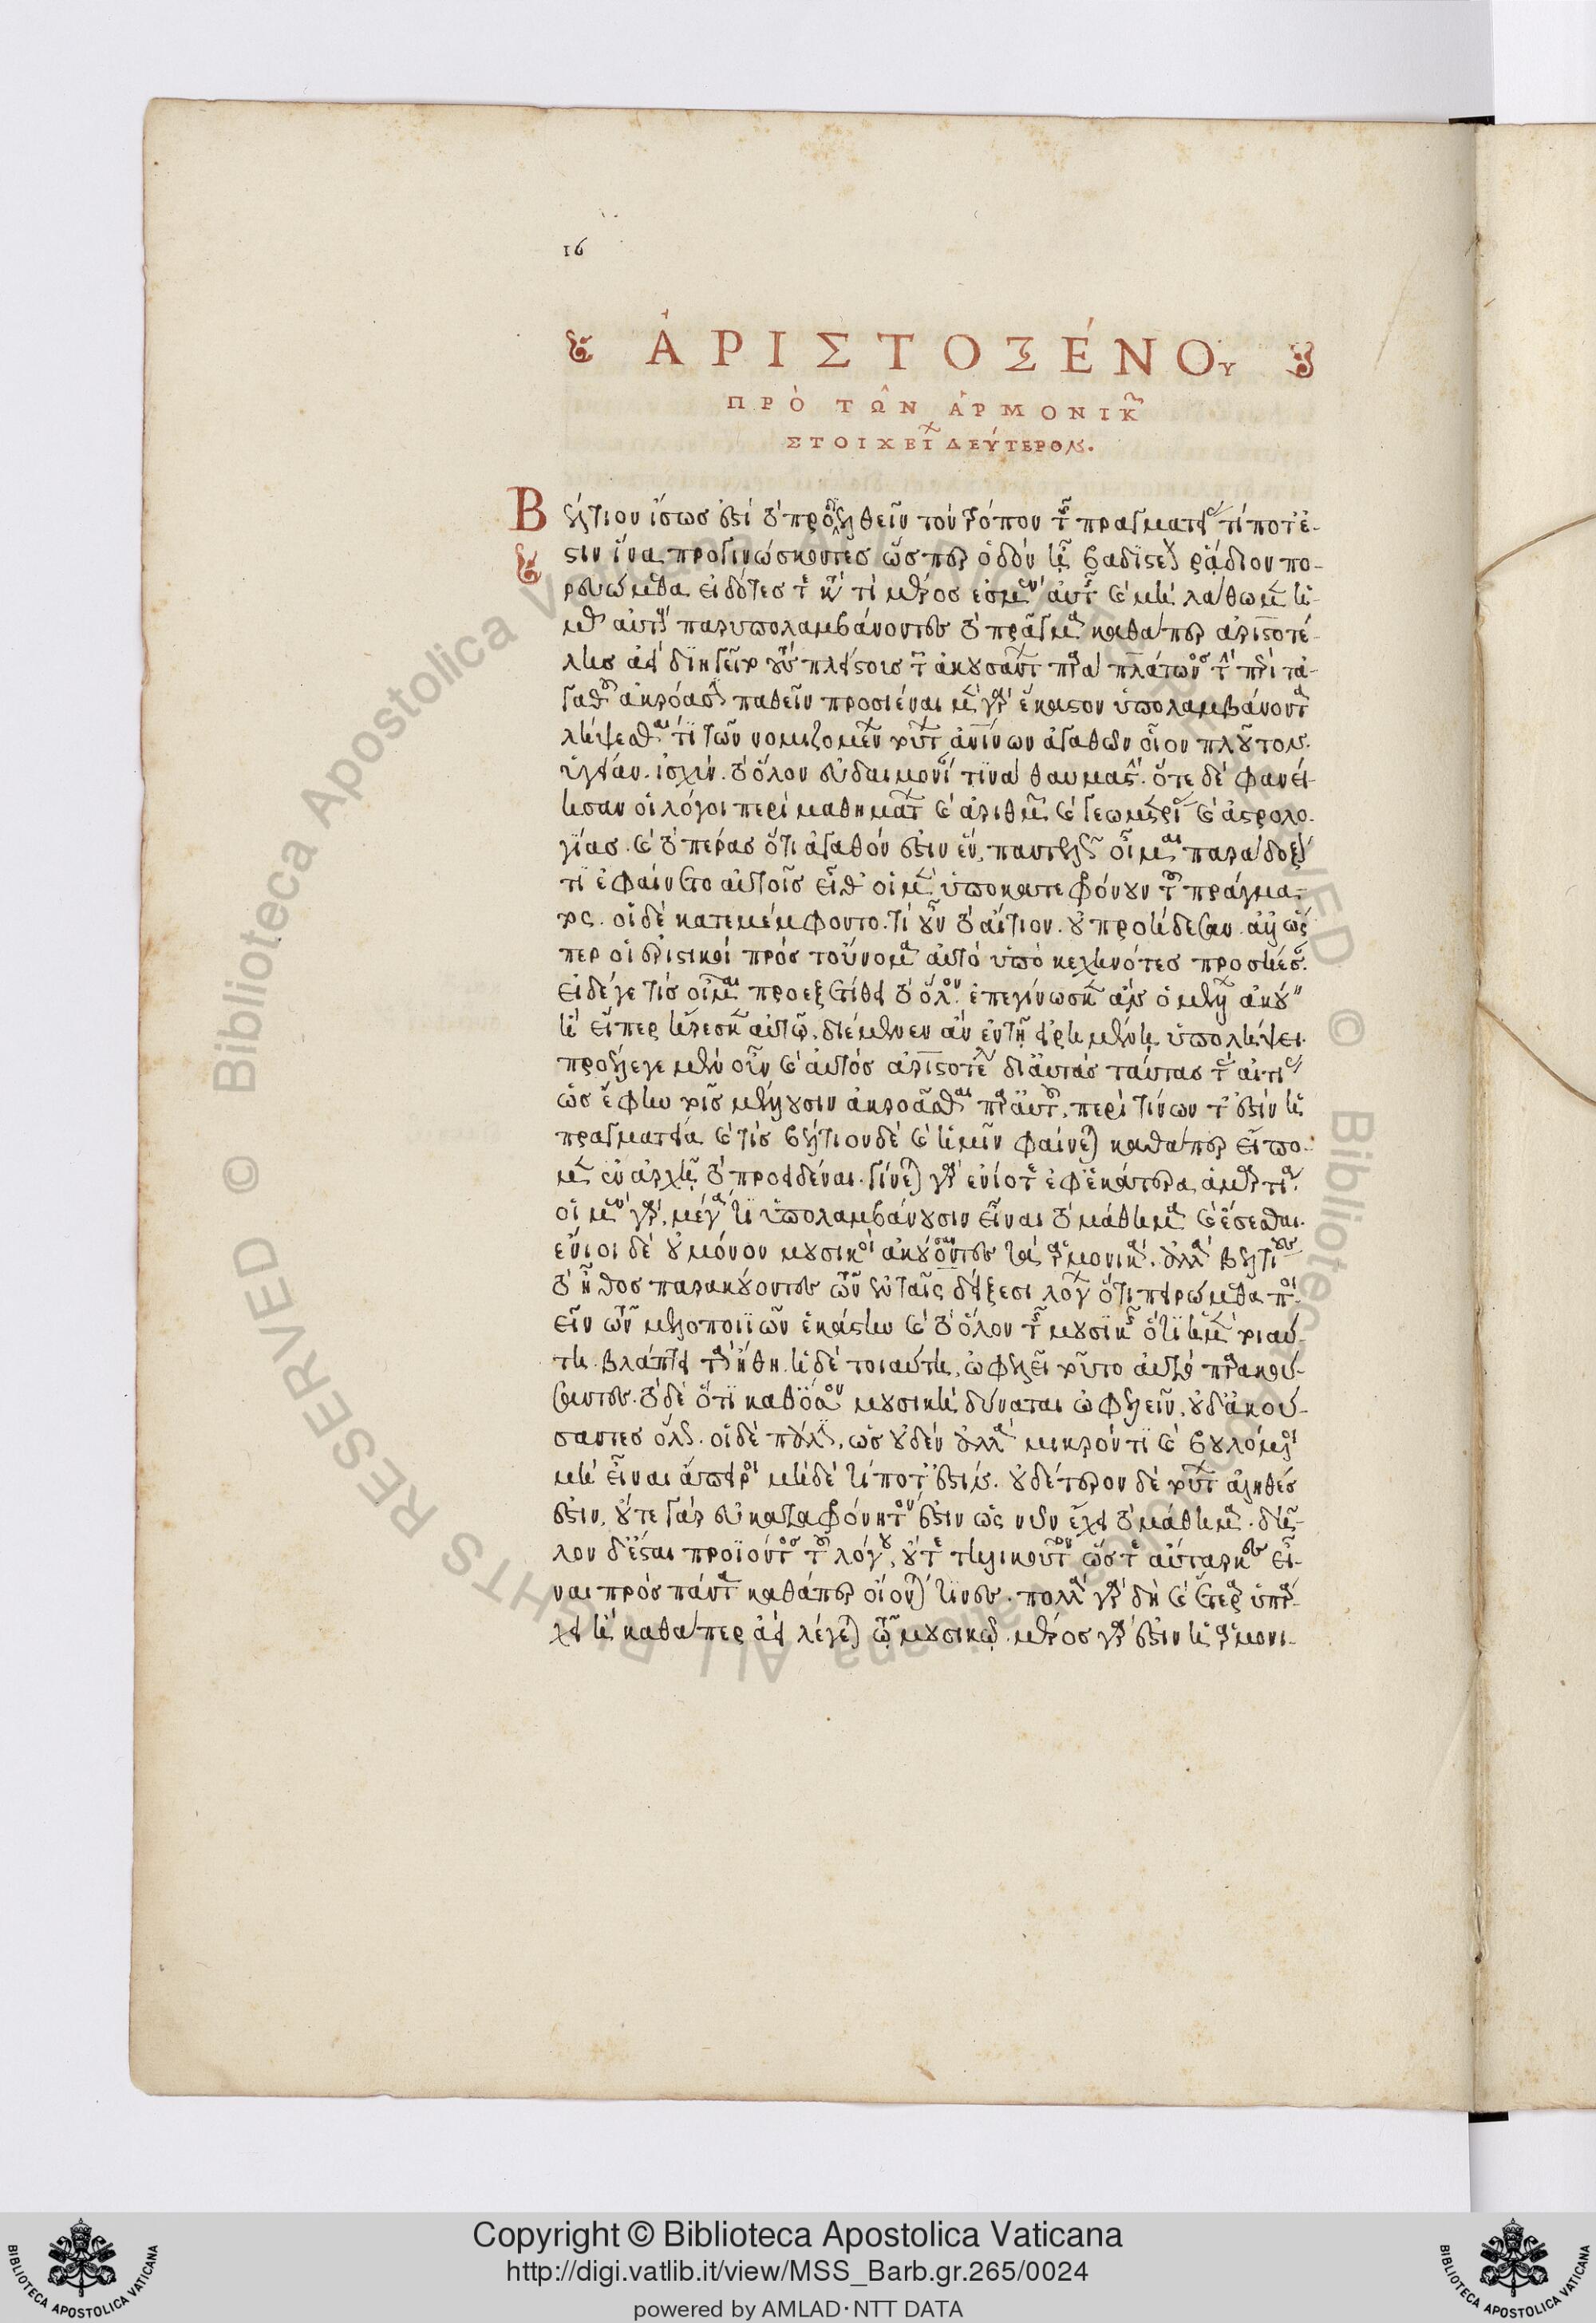 16
ἈΡΙΣΤΟΞΈΝΟΥ
ΠΡῸ ΤΩ͂Ν ἉΡΜΟΝΙΚῶν
ΣΤΟΙΧΕΊων ΔΕΎΤΕΡΟΝ.
Βέλτιον ἴσως ἐστὶ τὸ προδιελθεῖν τὸν τρόπον τῆς πραγματείας τί ποτ᾽ ἐ-
στιν ἵνα προγινώσκοντες ὥσπερ ὁδὸν ᾗ βαδιστέον ῥᾴδιον πο-
ρευώμεθα εἰδότες τε κατὰ τί μέρος ἐσμὲν αὐτῆς καὶ μὴ λάθωμεν ἡ-
μᾶς αὐτοὺς παρυπολαμβάνοντες τὸ πρᾶγμα καθάπερ ἀριστοτέ-
λης ἀεὶ διηγεῖτο τοὺς πλείστους τῶν ἀκουσάντων παρὰ πλάτωνος τὴν περὶ τἀ-
γαθοῦ ἀκρόασιν παθεῖν προσιέναι μὲν γὰρ ἕκαστον ὑπολαμβάνοντα
λήψεσθαί τι τῶν νομιζομένων τούτων ἀνθρωπίνων ἀγαθῶν οἷον πλοῦτον.
ὑγείαν. ἰσχύν. τὸ ὅλον εὐδαιμονίαν τινὰ θαυμαστήν. ὅτε δὲ φανεί-
ησαν οἱ λόγοι περὶ μαθημάτων καὶ ἀριθμῶν καὶ γεωμετρίας καὶ ἀστρολο-
γίας. καὶ τὸ πέρας ὅτι ἀγαθόν ἐστιν ἕν, παντελῶς οἶμαι παράδοξόν
τι ἐφαίνετο αὐτοῖς εἶθ᾽ οἱ μὲν ὑποκατεφρόνουν τοῦ πράγμα-
τος. οἱ δὲ κατεμέμφοντο. τί οὖν τὸ αἴτιον. οὐ προῄδεσαν ἀλλ᾽ ὥσ
περ οἱ ἐριστικοὶ πρὸς τοὔνομα αὐτὸ ὑποκεχηνότες προσῄεσαν.
εἰ δέ γέ τις οἶμαι προεξετίθει τὸ ὅλον. ἐπεγίνωσκεν ἂν ὁ μέλλων ἀκούειν
ἢ εἴπερ ἤρεσκεν αὐτῷ. διέμενεν ἂν ἐν τῇ εἰρημένῃ ὑπολήψει.
προέλεγε μὲν οὖν καὶ αὐτὸς ἀριστοτέλης δι᾽ αὐτὰς ταύτας τὰς αἰτίας
ὡς ἔφην τοῖς μέλλουσιν ἀκροᾶσθαι παρ᾽ αὐτοῦ, περὶ τίνων τ᾽ ἐστὶν ἡ
πραγματεία καὶ τίς βέλτιον δὲ καὶ ἡμῖν φαίνεται καθάπερ εἴπο-
μεν ἐν ἀρχῇ τὸ προειδέναι. γίνεται γὰρ ἐνίοτε ἐφ᾽ ἑκάτερα ἁμαρτία.
οἱ μὲν γὰρ, μέγα τι ὑπολαμβάνουσιν εἶναι τὸ μάθημα καὶ ἔσεσθαι.
ἔνιοι δὲ οὐ μόνον μουσικοὶ ἀκούσαντες τὰ ἁρμονικά. ἀλλὰ βελτίους
τὸ ἦθος παρακούοντες τῶν ἐν ταῖς δείξεσι λόγων ὅτι πειρώμεθα ποι-
εῖν τῶν μελοποιιῶν ἑκάστην καὶ τὸ ὅλον τῆς μουσικῆς ὅτι ἡ μὲν τοιαύ-
τη. βλάπτει τὰ ἤθη. ἡ δὲ τοιαύτη, ὠφελεῖ τοῦτο αὐτὸ παρακού-
σαντες. τὸ δὲ ὅτι καθ᾽ ὅσον μουσικὴ δύναται ὠφελεῖν, οὐδ᾽ ἀκού-
σαντες ὅλως. οἱ δὲ πάλιν, ὡς οὐδὲν ἀλλὰ μικρόν τι καὶ βουλόμενοι
μὴ εἶναι ἄπειροι μηδὲ τί ποτ᾽ ἐστίν. οὐδέτερον δὲ τούτων ἀληθές
ἐστιν, οὔτε γὰρ εὐκαταφρόνητόν ἐστιν ὡς νῦν ἔχει τὸ μάθημα. δῆ-
λον δ᾽ ἔσται προϊόντος τοῦ λόγου, οὔτε τηλικοῦτον ὥστε αὔταρκες εἶ-
ναι πρὸς πάντα καθάπερ οἴονταί τινες. πολλὰ γὰρ δὴ καὶ ἕτερα ὑπάρ-
χει ἢ καθάπερ ἀεὶ λέγεται τῷ μουσικῷ. μέρος γάρ ἐστιν ἡ ἁρμονι-
Copyright © Biblioteca Apostolica Vaticana
http://digi.vatlib.it/view/MSS_Barb.gr.265/0024
powered by AMLAD·NTT DATA